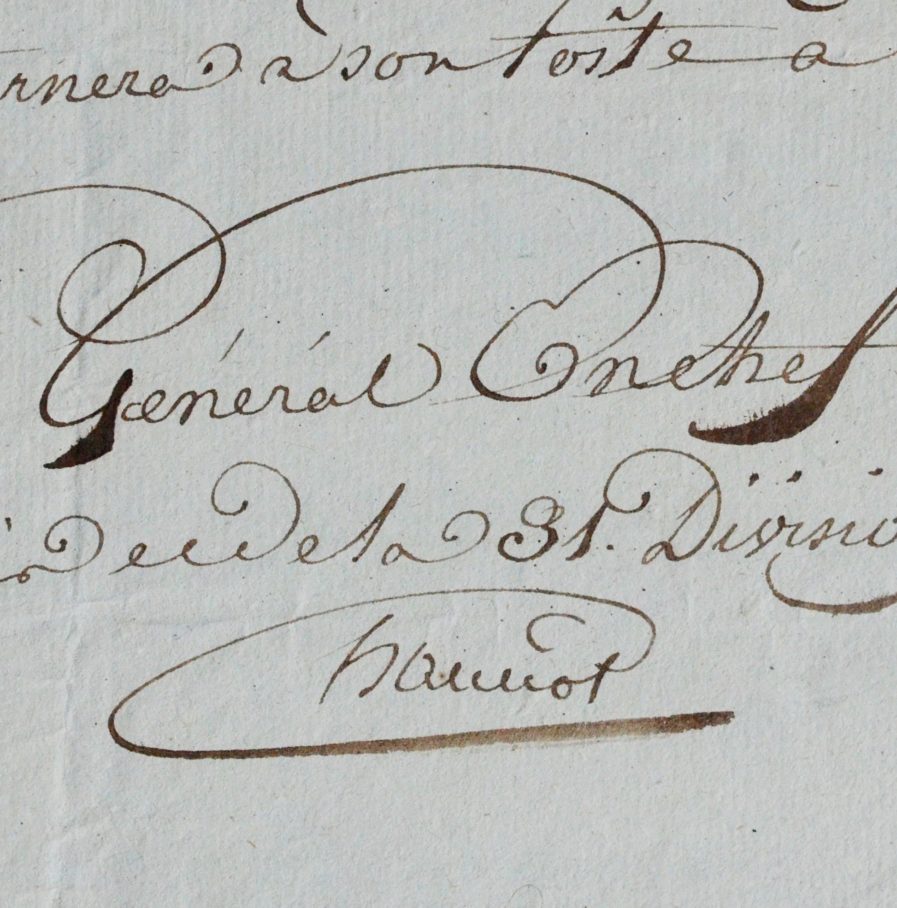 rnera à son Poste a
Général En chef
de la 31. Divisio